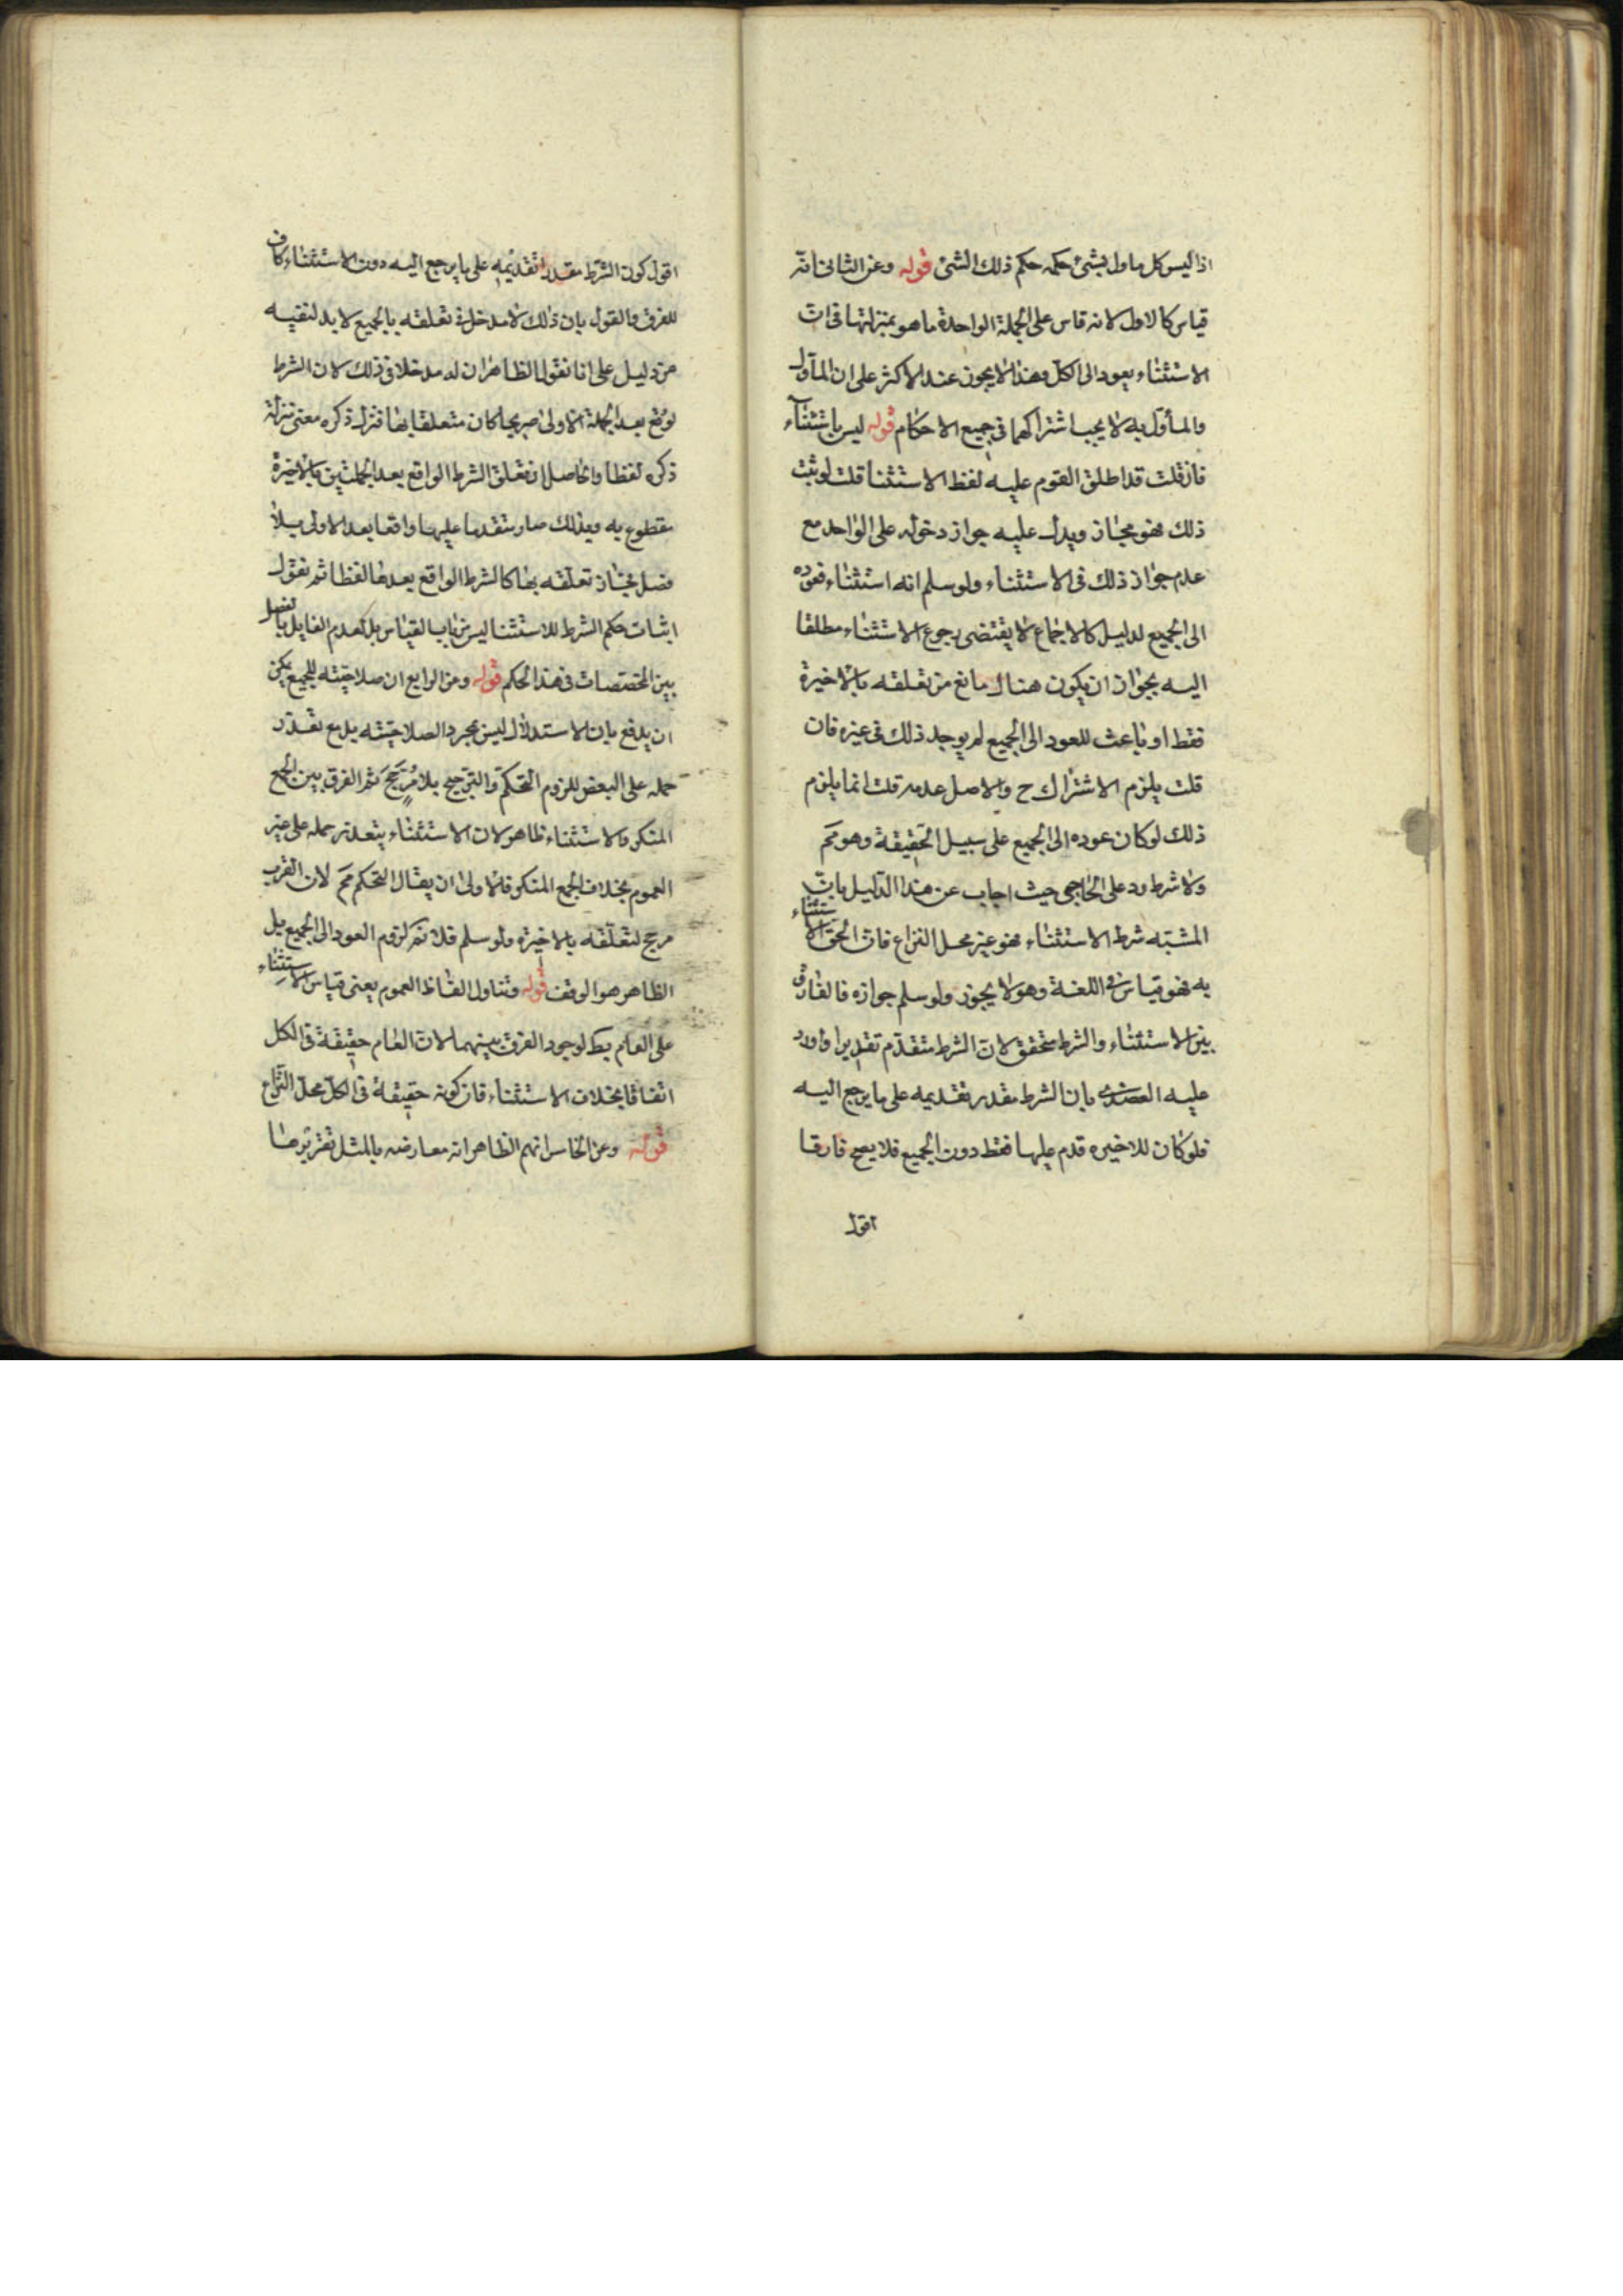 اذ ليس كل ما ول بشئ حكمه حكم ذلك الشئ قوله وعن الثانى انه
قياس كالاول لانه قاس على الجملة الواحدة ما هو بمنزلتها فى ان
الاستثناء يعود الى الكل وهذا لا يجوز عند الاكثر على ان المأول
والمأول به لا يجب اشتراكهما فى جميع الاحكام قوله ليس باستثناء
فان قلت قد اطلق القوم عليه لفظ الاستثنا قلت لو ثبت
ذلك فهو مجاز ويدل عليه جواز دخوله على الواحد مع
عدم جواز ذلك فى الاستثناء ولو سلم انه استثناء فعوده
الى الجميع لدليل كالاجماع لا يقتضى رجوع الاستثناء مطلقا
اليه بجواز ان يكون هناك مانع من تعلقه بالاخيرة
فقط او باعث للعود الى الجميع لم يوجد ذلك فى غيره فان
قلت يلزم الاشتراك ح والاصل عدمه قلت انما يلزم
ذلك لو كان عوده الى الجميع على سبيل الحقيقة وهو مم
ولا شرط ورد على الحاجبى حيث اجاب عن هذا الدليل بان
المشبه شرط الاستثناء فهو غير محل النزاع فان الحق الاستثناء
به فهو قياس فى اللغة وهو لا يجوز ولو سلم جوازه فالفارق
بين الاستثناء والشرط متحقق لان الشرط متقدم تقديرا واورد
عليه العضدى بان الشرط مقدر تقديمه على ما يرجع اليه
فلو كان للاخيره قدم عليها فقط دون الجميع فلا يصح فارقا
اقول
اقول كون الشرط مقدرا تقديمه على ما يرجع اليه دون الاستثناء كاف
للفرق والقول بان ذلك لا مدخل فى تعلقه بالجميع لا بد لنفيه
من دليل على انا نقول الظاهر ان له مدخلا فى ذلك لان الشرط
لو وقع بعد الجملة الاولى صريحا كان متعلقا بها فنزل ذكره معنى منزلة
ذكره لفظا والحاصل ان تعلق الشرط الواقع بعد الجملتين بالاخيرة
مقطوع به وبذلك صار متقدما عليها واقعا بعد الاولى بلا
فصل فجاز تعلقه بها كالشرط الواقع بعدها لفظا ثم نقول
اثبات حكم الشرط للاستثنا ليس من باب القياس بل لعدم القايل بالفصل
بين المخصصات فى هذا الحكم قوله ومن الرابع ان صلاحيته للجميع يمكن
ان يدفع بان الاستدلال ليس بمجرد الصلاحيته بل مع تعذر
حمله على البعض للزوم التحكم والترجيح بلا مرجح ثم الفرق بين الجمع
المنكر والاستثناء ظاهر لان الاستثناء يتعذر حمله على غير
العموم بخلاف الجمع المنكر فالاولى ان يقال التحكم مم لان القرب
مرجح لتعلقه بالاخيره ولو سلم فلا نم لزوم العود الى الجميع بل
الظاهر هو الوقف قوله وتناول الفاظ العموم يعنى قياس الاستثناء
على العام بط لوجود الفرق بينهما لان العام حقيقة فى الكل
اتفاقا بخلاف الاستثناء فان كونه حقيقة فى الكل محل النزاع
قوله وعن الخامس انهم الظاهر انه معارضه بالمثل تقريرها